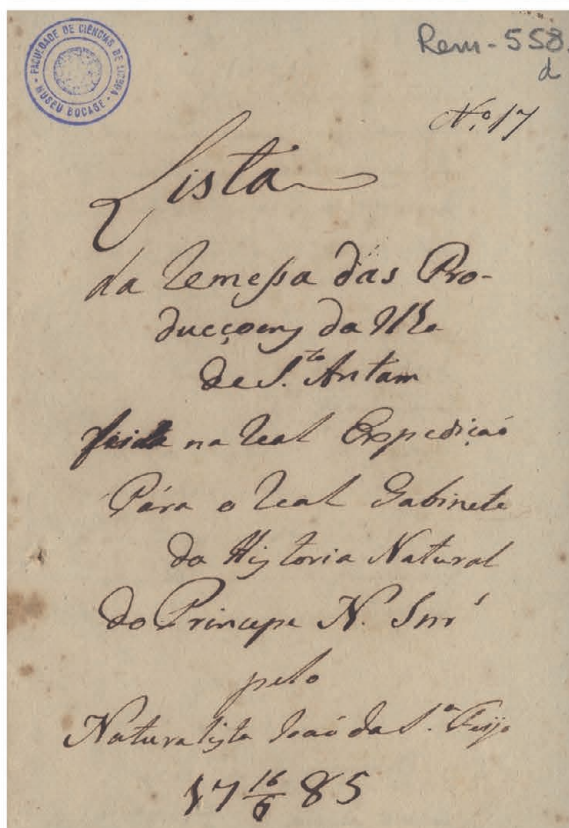 FACULDADE DE CIÊNCIAS DE LISBOA - MUSEU BOCAGE -
Rem - 558.
d
N.º 17
Lista
da Remessa das Pro-
ducçoens da Ilha
de S.to Antam
feita na Real Expediçaõ
Pára o Real Gabinete
da Historia Natural
do Principe N. Snr'
pelo
Naturalista Joaõ da S.a Feijo
17 16/6 85